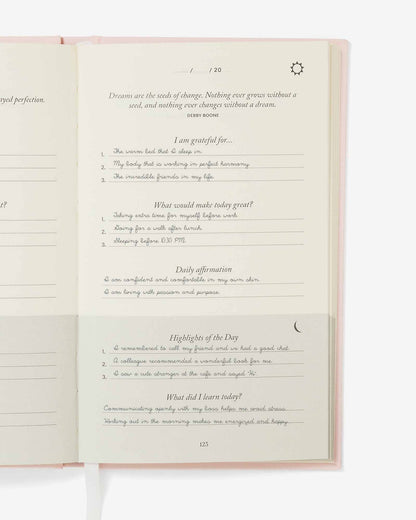 ayed perfection.
at?
/ / 20
Dreams are the seeds of change. Nothing ever grows without a
seed, and nothing ever changes without a dream.
DEBBY BOONE
I am grateful for...
1. The warm bed that I sleep in.
2. My body that is working in perfect harmony.
3. The incredible friends in my life.
What would make today great?
1. Taking extra time for myself before work.
2. Going for a walk after lunch.
3. Sleeping before 10:30 PM.
Daily affirmation
I am confident and comfortable in my own skin.
I am living with passion and purpose.
Highlights of the Day
1. I remembered to call my friend and we had a good chat.
2. A colleague recommended a wonderful book for me.
3. I saw a cute stranger at the cafe and sayed "Hi".
What did I learn today?
Communicating openly with my boss helps me avoid stress.
Working out in the morning makes me energized and happy.
125